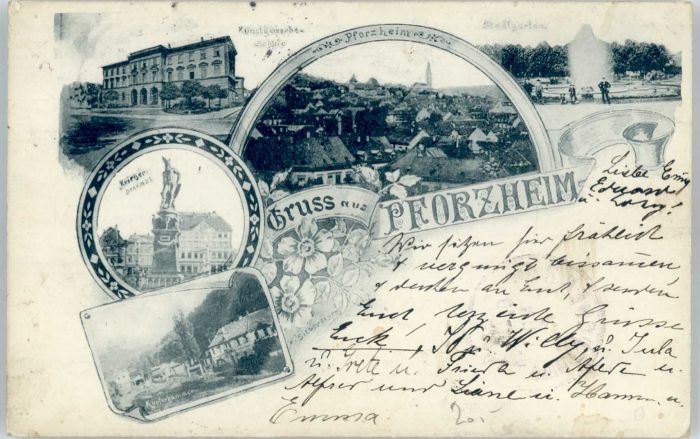 Kunstgewerbe-
Schule
Pforzheim
Stadtgarten
Krieger-
denkmal
Gruss aus
PFORZHEIM
Kupferhammer
Liebe Emy
Eduard
u. Lory!
Wir sitzen hier fröhlich
u. vergnügt beisammen
u. denken an Euch, u. senden
Euch herzliche Grüsse
Euch! Willy, u. Jula
u. Grete u. Frieda u. Alfred u.
Alfred und Liane u. Hann. u.
Emma
20